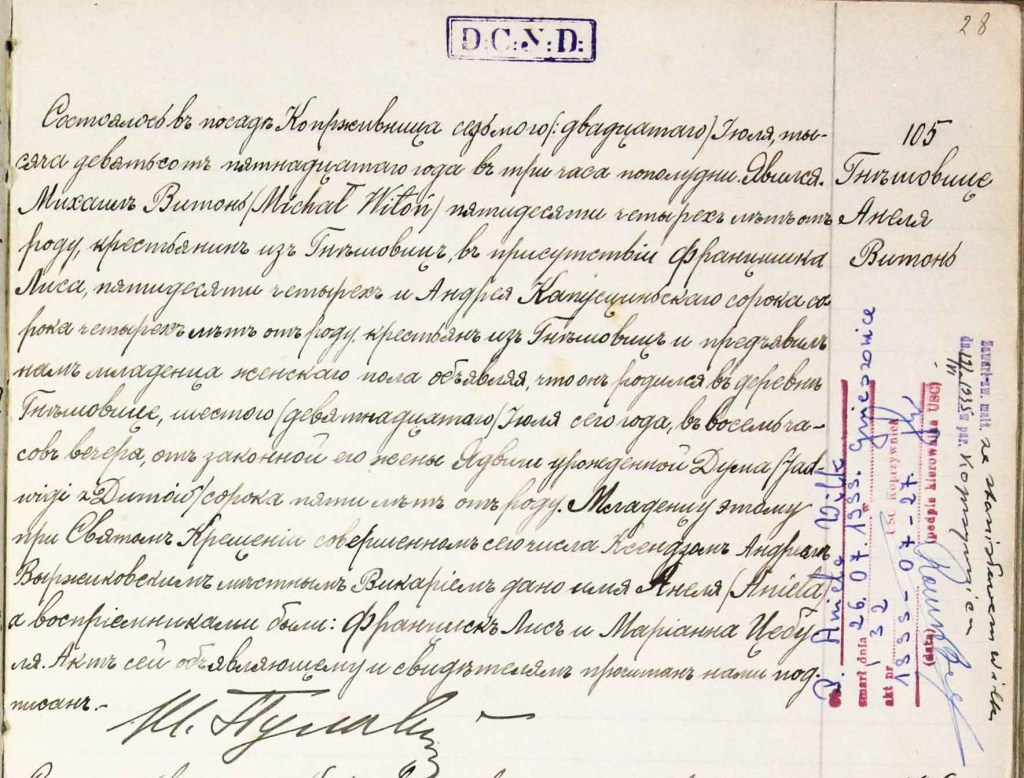 28
D:C:N:D:
Состоялось въ посадѣ Копрживница седьмого /: двадцатаго / Іюля, ты-
сяча девятьсотъ пятнадцатаго года въ три часа пополудни. Явился.
Михаилъ Витонь / Michał Witoń / пятидесяти четырехъ лѣтъ отъ
роду, крестьянинъ изъ Гнѣшовицъ, въ присутствіи Францишка
Лиса, пятидесяти четырехъ и Андрея Капусциньскаго сорока со
рока четырехъ лѣтъ отъ роду, крестьянъ изъ Гнѣшовицъ и предъявилъ
намъ младенца женскаго пола объявляя, что онъ родился въ деревнѣ
Гнѣшовице, шестого / девятнадцатаго / Іюля сего года, въ восемь ча-
совъ вечера, отъ законной его жены Ядвиги урожденной Дума / Jad-
wigi z Dumów / сорока пяти лѣтъ отъ роду. Младенцу этому
при Святомъ Крещеніи совершенномъ сего числа Ксендзомъ Андреемъ
Выржиковскимъ мѣстнымъ Викаріемъ дано имя Анеля / Aniela /
а воспріемниками были: Францискъ Лисъ и Маріанна Цебу
ля. Актъ сей объявляющему и свидѣтелямъ прочитанъ нами под-
писанъ.-
105
Гнѣшовице
Анеля
Витонь
Aniela Wilk
zmarł dnia 26.07.1993. Gnieszowice
akt nr 132 USC Koprzywnica
1993-07-27
(data) (podpis kierownika USC)
Zawarł zw. małż. ze Stanisławem Wilk
dn. 1935 w par. Koprzywnica